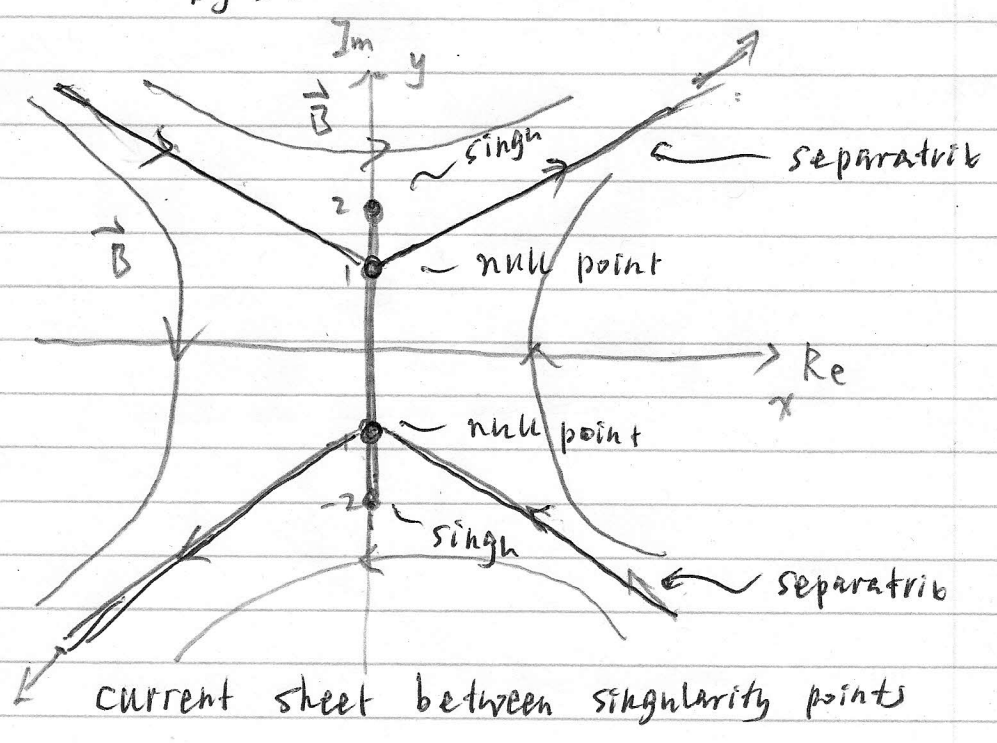 Im
y
B
singh
separatrib
2
B
null point
1
Re
x
null point
1
-2
singh
separatrib
current sheet between singularity points